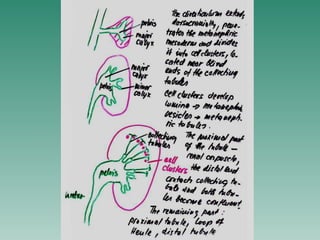 The diverticulum extends
dorsocranially, pene-
trates the metanephric
mesoderm and divides
it into cell clusters, lo-
cated near blind
ends of the collecting
tubules
Cell clusters develop
lumina → metanephric
vesicles → metaneph-
ric tubules.
The proximal part
of the tubule –
renal capsule,
the distal end
contacts collecting tu-
bule and both tubu-
les become confluent.
The remaining part:
Proximal tubule, loop of
Henle, distal tubule
pelvis
major
calyx
major
calyx
pelvis
minor
calyx
collecting
tubules
cell
clusters
pelvis
ureter